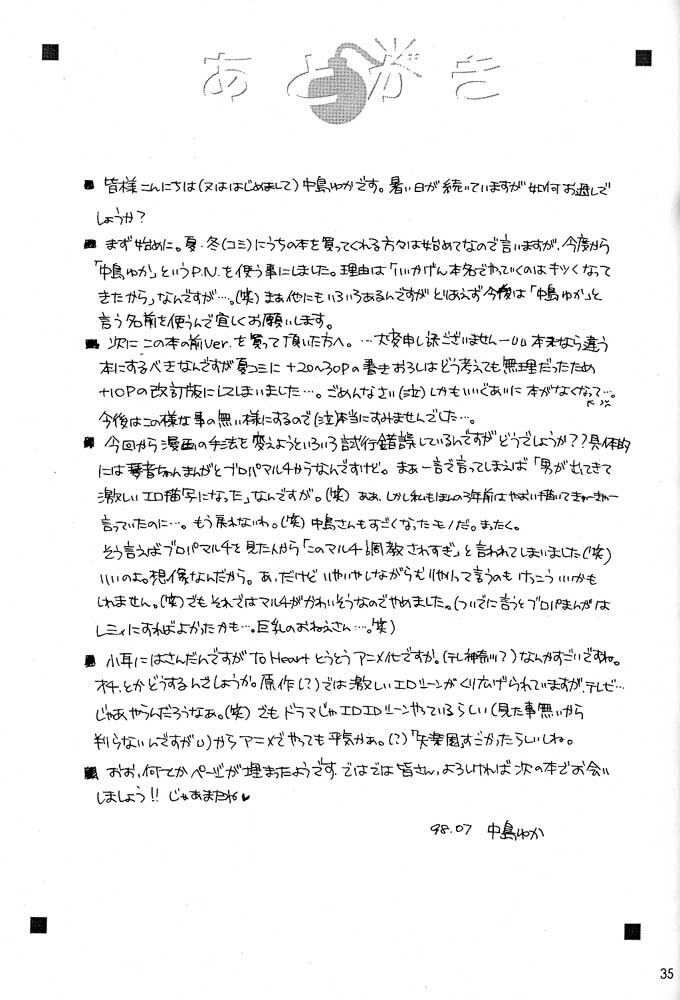 あとがき
■ 皆様こんにちは(又ははじめまして)中島ゆかです。暑い日が続いていますが如何お過しで
しょうか?
■ まず始めに。夏・冬(コミ)にうちの本を買ってくれる方々は始めてなので言いますが、今度から
「中島ゆか」というP.N.を使う事にしました。理由は「いいかげん本名でやっていくのはキツくなって
きたから」なんですが…。(笑) まぁ他にもいろいろあるんですがとりあえず今後は「中島ゆか」と
言う名前を使うんで宜しくお願いします。
■ 次にこの本の前Ver.を買って頂いた方へ。…大変申し訳ございませんーUU 本来なら違う
本にするべきなんですが夏コミに+20~30Pの書きおろしはどう考えても無理だったため
+10Pの改訂版にしてしまいました…。ごめんなさい(泣)しかもいいぐあいに本がなくなって…。
今後はこの様な事の無い様にするので(泣)本当にすみませんでした…。
■ 今回から漫画の手法を変えようといろいろ試行錯誤しているんですがどうでしょうか??具体的
には琴音ちゃんまんがとプロパマルチからなんですけど。まぁ一言で言ってしまえば「男が出てきて
激しいエロ描写になった」なんですが。(笑) ああ、しかし私もほんの3年前はやおい描いてきゃーきゃー
言っていたのに…。もう戻れないわ。(笑)中島さんもすごくなったモノだ。まったく。
そう言えばプロパマルチを見た人から「このマルチ調教されすぎ」と言われてしまいました(笑)
いいのよ。想像なんだから。あ、だけどいやいやしながらむりやりって言うのもけっこういいかも
しれません。(笑)でもそれではマルチがかわいそうなのでやめました。(ついでに言うとプロパまんがは
レミィにすればよかったかも…。巨乳のおねえさん…。笑)
■ 小耳にはさんだんですがTo Heartとうとうアニメ化ですか。(テレビ神奈川?)なんかすごいですね。
オチ、とかどうするんでしょうか。原作(?)では激しいエロシーンがくり広げられていますが、テレビ…
じゃあやらんだろうなぁ。(笑)でもドラマじゃエロエロシーンやっているらしい(見た事無いから
判らないんですがU)からアニメでやっても平気かぁ。(?)「失楽園」すごかったらしいしね。
■ おお、何とかページが埋まったようです。ではでは皆さん、よろしければ次の本でお会い
しましょう!!じゃあまたね♥
98.07 中島ゆか
35